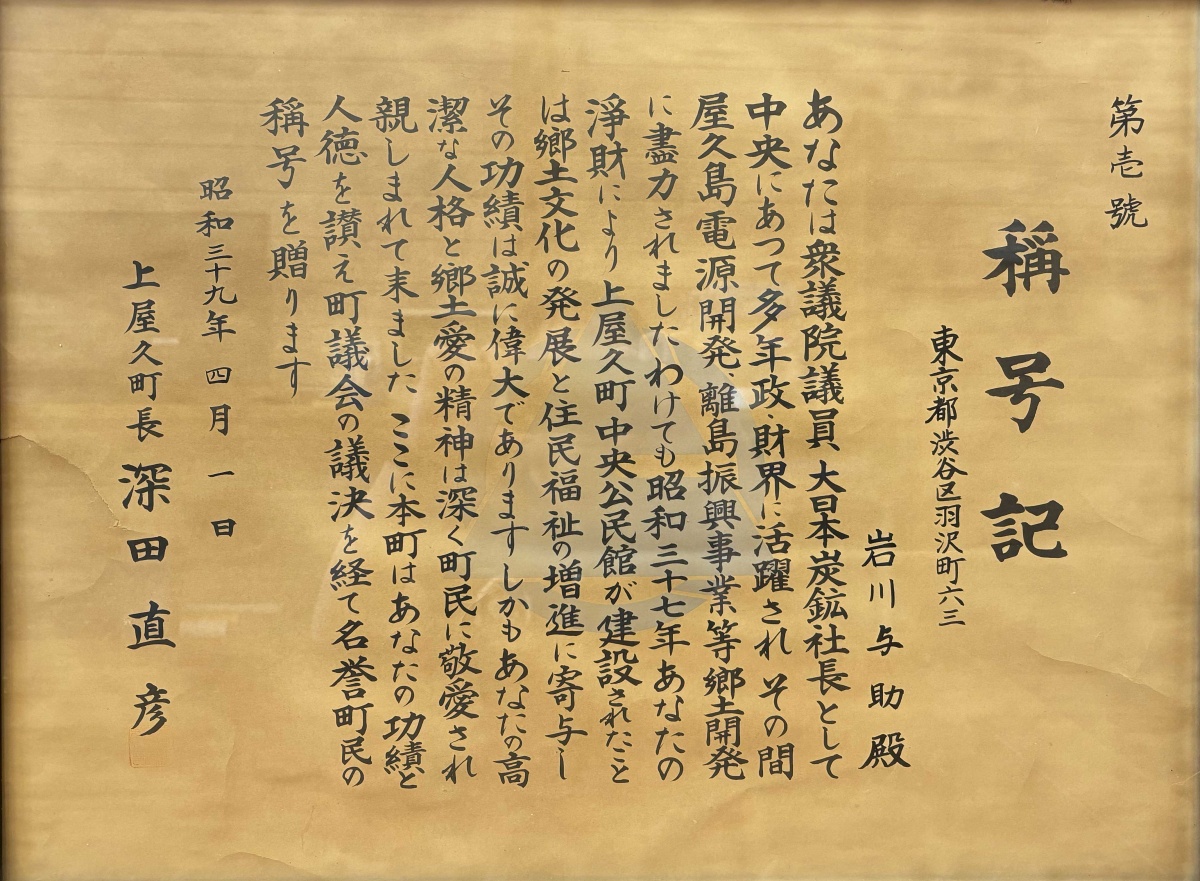 第壱號
稱号記
東京都渋谷区羽沢町六三
岩川与助殿
あなたは衆議院議員 大日本炭鉱社長として
中央にあつて多年政・財界に活躍され その間
屋久島電源開発、離島振興事業等郷土開発
に盡力されました わけても昭和三十七年あなたの
淨財により上屋久町中央公民館が建設されたこと
は郷土文化の発展と住民福祉の増進に寄与し
その功績は誠に偉大であります しかもあなたの高
潔な人格と郷土愛の精神は深く町民に敬愛され
親しまれて来ました ここに本町はあなたの功績と
人徳を讃え町議会の議決を経て名誉町民の
稱号を贈ります
昭和三十九年 四月 一日
上屋久町長 深田直彦